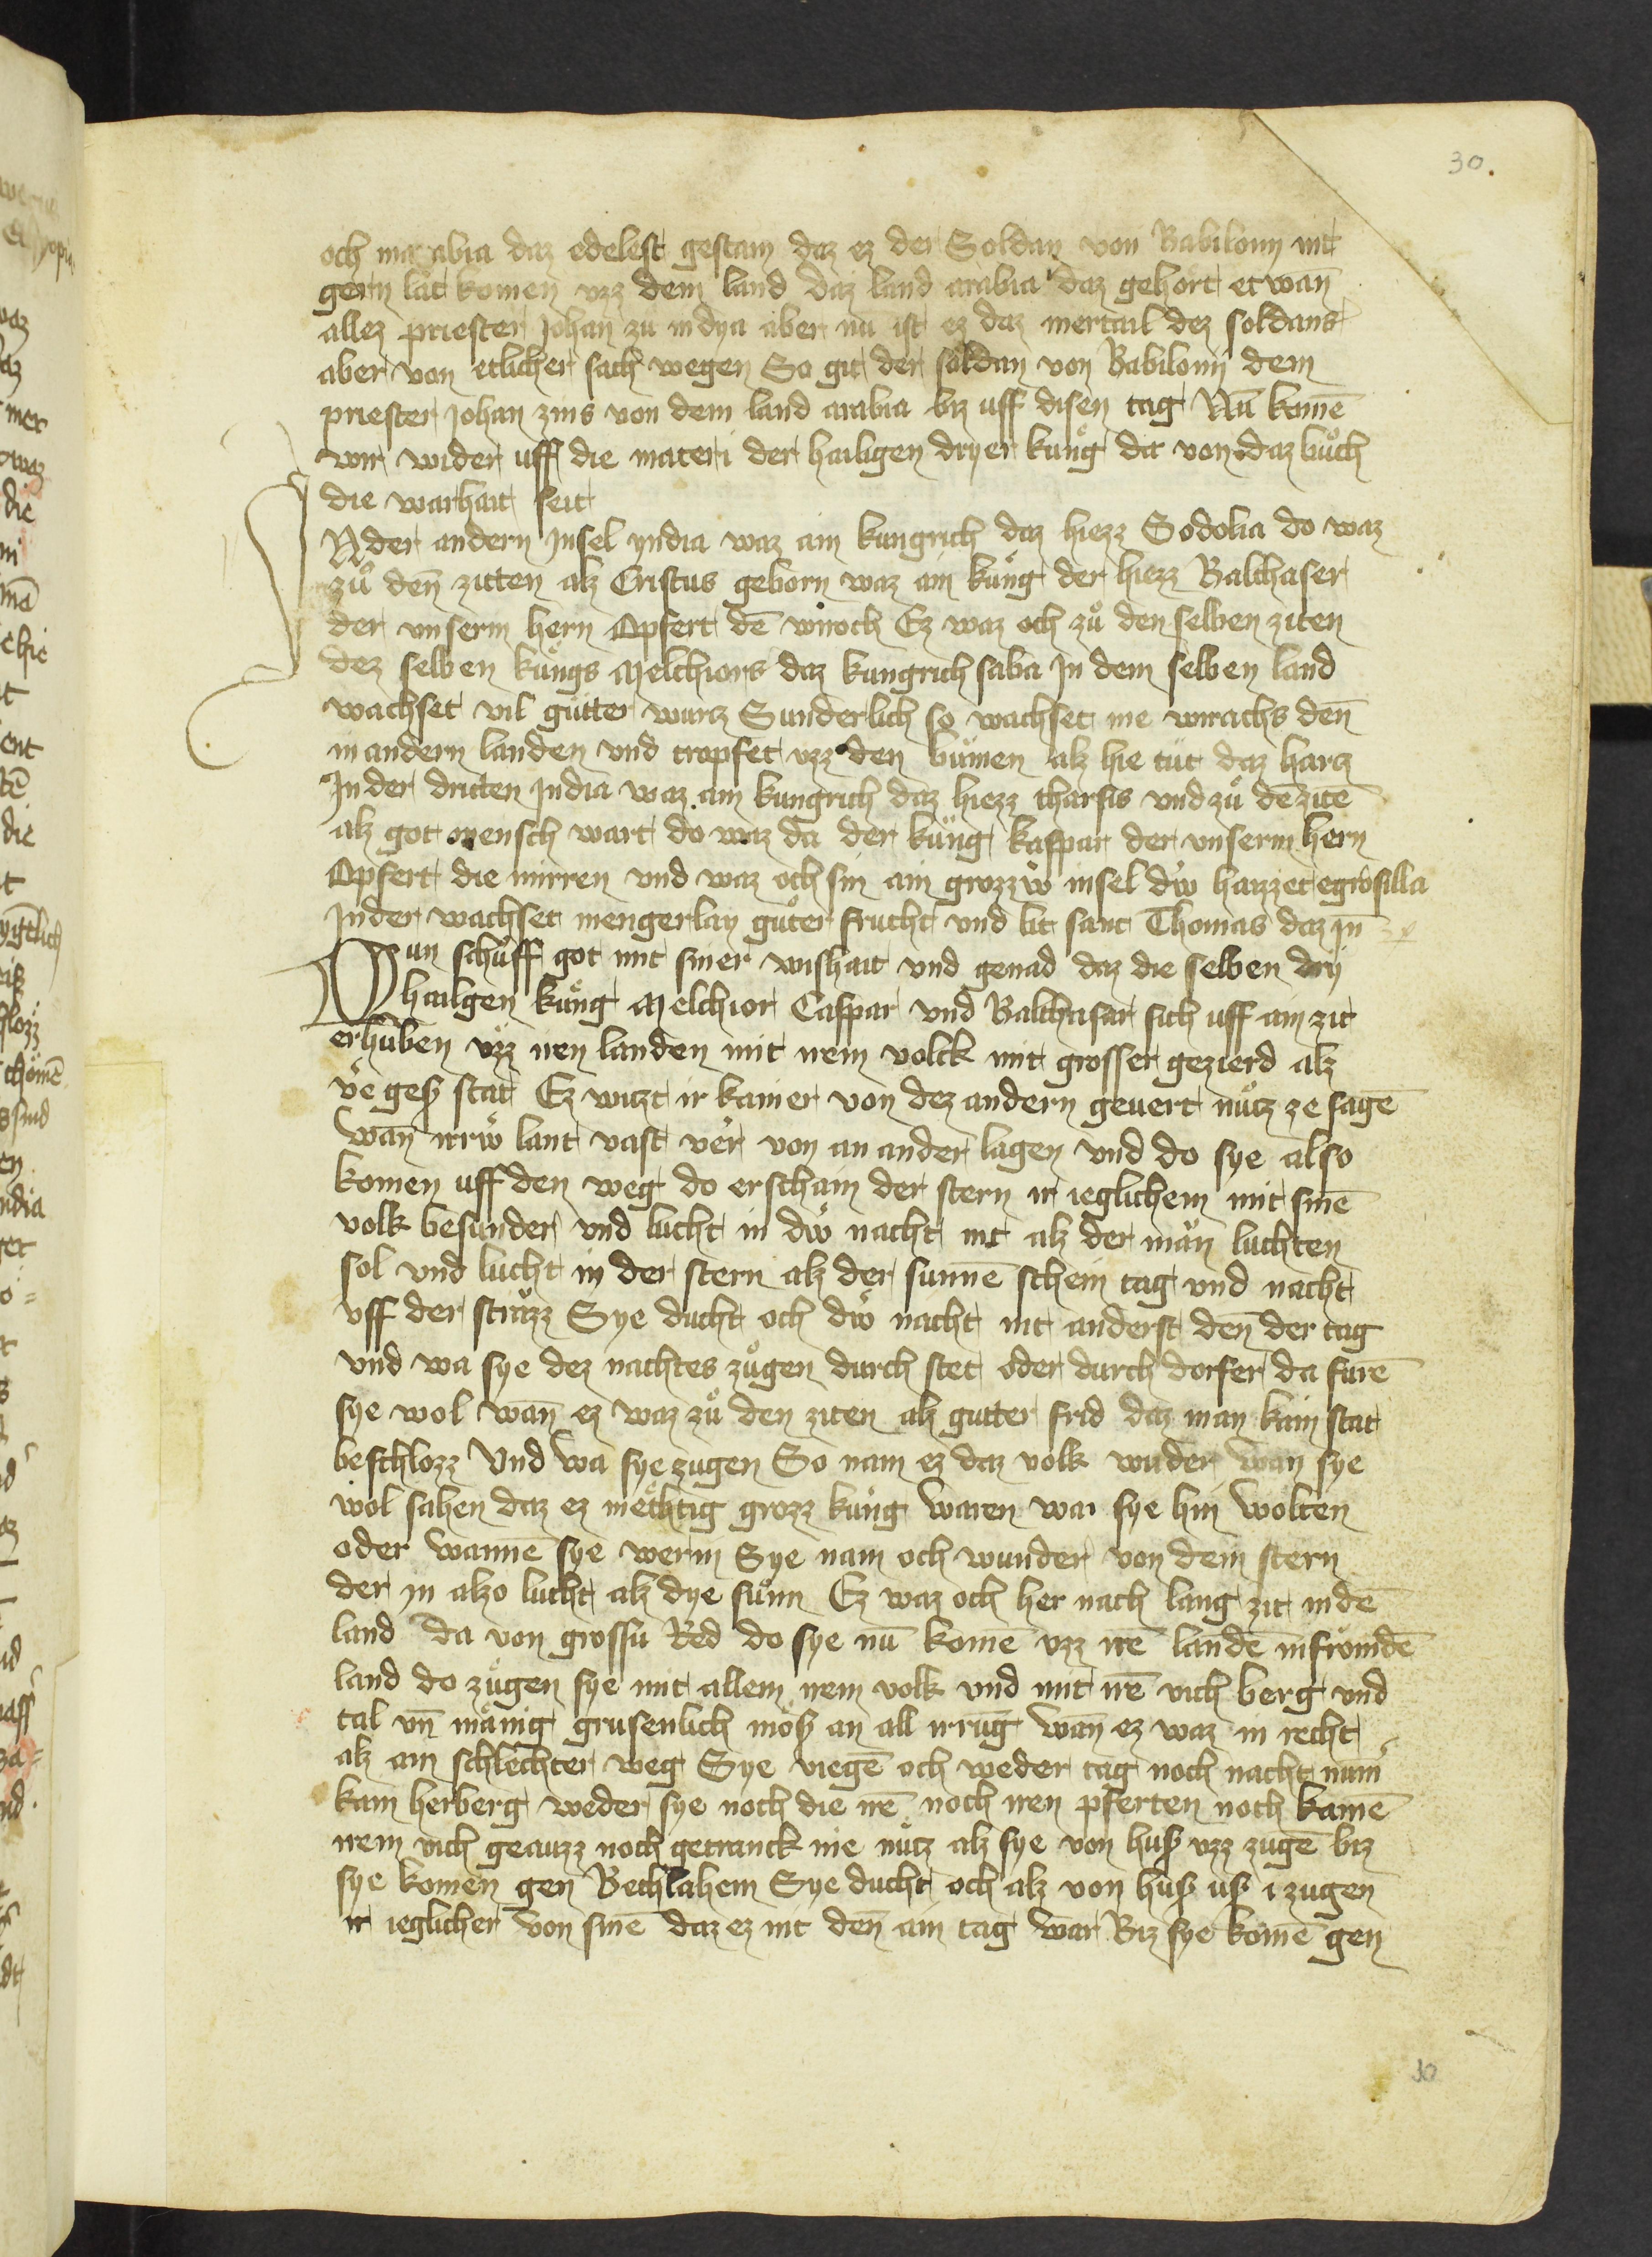 30.
och in arabia daz edelest gestain daz ez der Soldan von Babilony nit
gern lat komen vzz dem land daz land arabia daz gehort etwan̄
allez priester Johan zu indya aber nu ist ez daz mertail dez soldans
aber von etlicher sach wegen So git der soldan von Babilony dem
priester Johan zins von dem land arabia biz uff disen tag Nu̅ komē
wir wider uff die materi der hailigen dryer kung da von daz bůch
die warhait seit
In der andern Insel yndia waz ain kungrich daz hiezz Godolia do waz
zů den̄ ziten alz Cristus geborn waz ain kúng der hiezz Balthaser
der vnserm hern Opfert dē wiroch Ez waz och zů den selben ziten
dez selben kúngs Melchiors daz kungrich saba In dem selben land
wachset vil gůtter wurz Sunderlich so wachset me wirachs den̄
in andern landen vnd tropfet vzz den bůmen alz hie tůt daz harz
In der dritten India waz ain kungrich daz hiezz tharsis vnd zů dē zitē
alz got mensch wart do waz da der kúng kaspar der vnserm hern
Opfert die mirren vnd waz och sin ain grozzẘ insel dẘ haizzet egrosilla
In der wachset mengerlay gůter frucht vnd lit sant Thomas daz In̄
Nun schůff got mit siner wishait vnd genad daz die selben dry
hailgen kúng Melchior Caspar vnd Balthasar sich uff ain zit
erhůben vzz iren landen mit irem volck mit grosser gezierd alz
vē gesß stat Ez wizt ir kainer von dez andern geuert nútz ze sagē
wan̄ irrẘ lant vast ver von an ander lagen vnd do sye also
komen uff den weg do erschain der stern ir ieglichem mit sinē
volk besunder vnd lucht in dẘ nacht nit alz der mǎn luchten
sol vnd lucht in der stern alz der sunnē schein tag vnd nacht
vff der strǎzz Sye ducht och dẘ nacht nit anderst den̄ der tag
vnd wa sye dez nachtes zůgen durch stet oder durch dorfer da fūrē
sye wol wan̄ ez waz zů den ziten alz gutter frid daz man kain stat
beschlozz Vnd wa sye zugen So nam ez daz volk wunder wan sye
wol sahen daz ez mechtig grozz kúng waren war sye hin wolten
oder wannē sye werin Sye nam och wunder von dem stern
der in alzo lucht alz dye sůnn Ez waz och her nach lang zit in dē
land da von grossu Red do sye nu̅ komē vzz irē landē in frömdē
land do zúgen sye mit allem irem volk vnd mit irē vich berg vnd
tal vn̄ mǎnig grusenlich möß an all irrūg wan̄ ez waz in recht
alz ain schlechter weg Sye viegē och weder tag noch nacht num̄
kain herberg weder sye noch die irē noch iren pferten noch kainē
irem vich geaizz noch getranck nie nútz alz sye von huß vzz zugē biz
sye komen gen Bechlahem Sye ducht och alz von huß uß i zugen
ir ieglicher von sinē daz ez nit den̄ ain tag war Biz sye komē gen
30